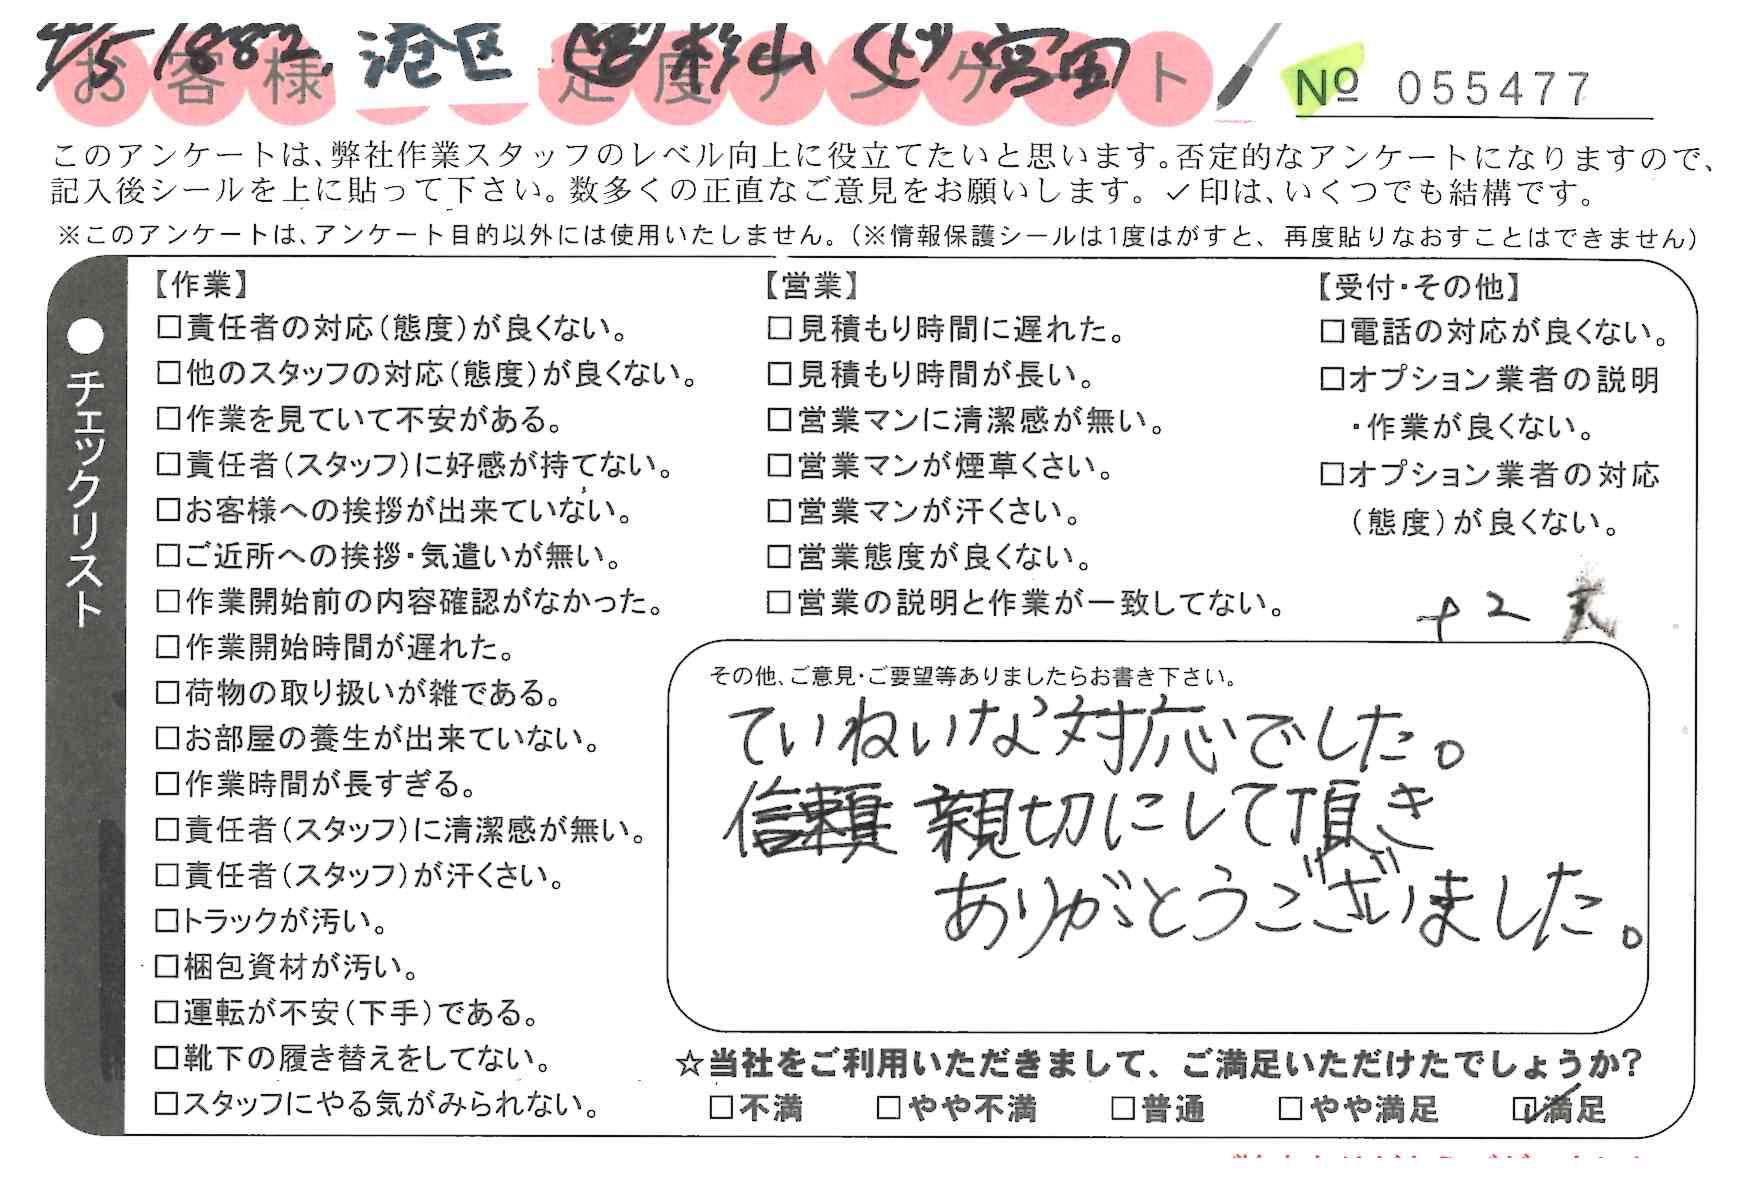 4/5 1882. 港区 杉山 宮田
お客様 足度アンケート
№ 055477
このアンケートは、弊社作業スタッフのレベル向上に役立てたいと思います。否定的なアンケートになりますので、
記入後シールを上に貼って下さい。数多くの正直なご意見をお願いします。✓印は、いくつでも結構です。
※このアンケートは、アンケート目的以外には使用いたしません。（※情報保護シールは1度はがすと、再度貼りなおすことはできません）
●チェックリスト
【作業】
□責任者の対応（態度）が良くない。
□他のスタッフの対応（態度）が良くない。
□作業を見ていて不安がある。
□責任者（スタッフ）に好感が持てない。
□お客様への挨拶が出来ていない。
□ご近所への挨拶・気遣いが無い。
□作業開始前の内容確認がなかった。
□作業開始時間が遅れた。
□荷物の取り扱いが雑である。
□お部屋の養生が出来ていない。
□作業時間が長すぎる。
□責任者（スタッフ）に清潔感が無い。
□責任者（スタッフ）が汗くさい。
□トラックが汚い。
□梱包資材が汚い。
□運転が不安（下手）である。
□靴下の履き替えをしてない。
□スタッフにやる気がみられない。
【営業】
□見積もり時間に遅れた。
□見積もり時間が長い。
□営業マンに清潔感が無い。
□営業マンが煙草くさい。
□営業マンが汗くさい。
□営業態度が良くない。
□営業の説明と作業が一致してない。
【受付・その他】
□電話の対応が良くない。
□オプション業者の説明
・作業が良くない。
□オプション業者の対応
（態度）が良くない。
+2
その他、ご意見・ご要望等ありましたらお書き下さい。
ていねいな対応でした。
信頼 親切にして頂き
ありがとうございました。
☆当社をご利用いただきまして、ご満足いただけたでしょうか?
□不満 □やや不満 □普通 □やや満足 ☑満足